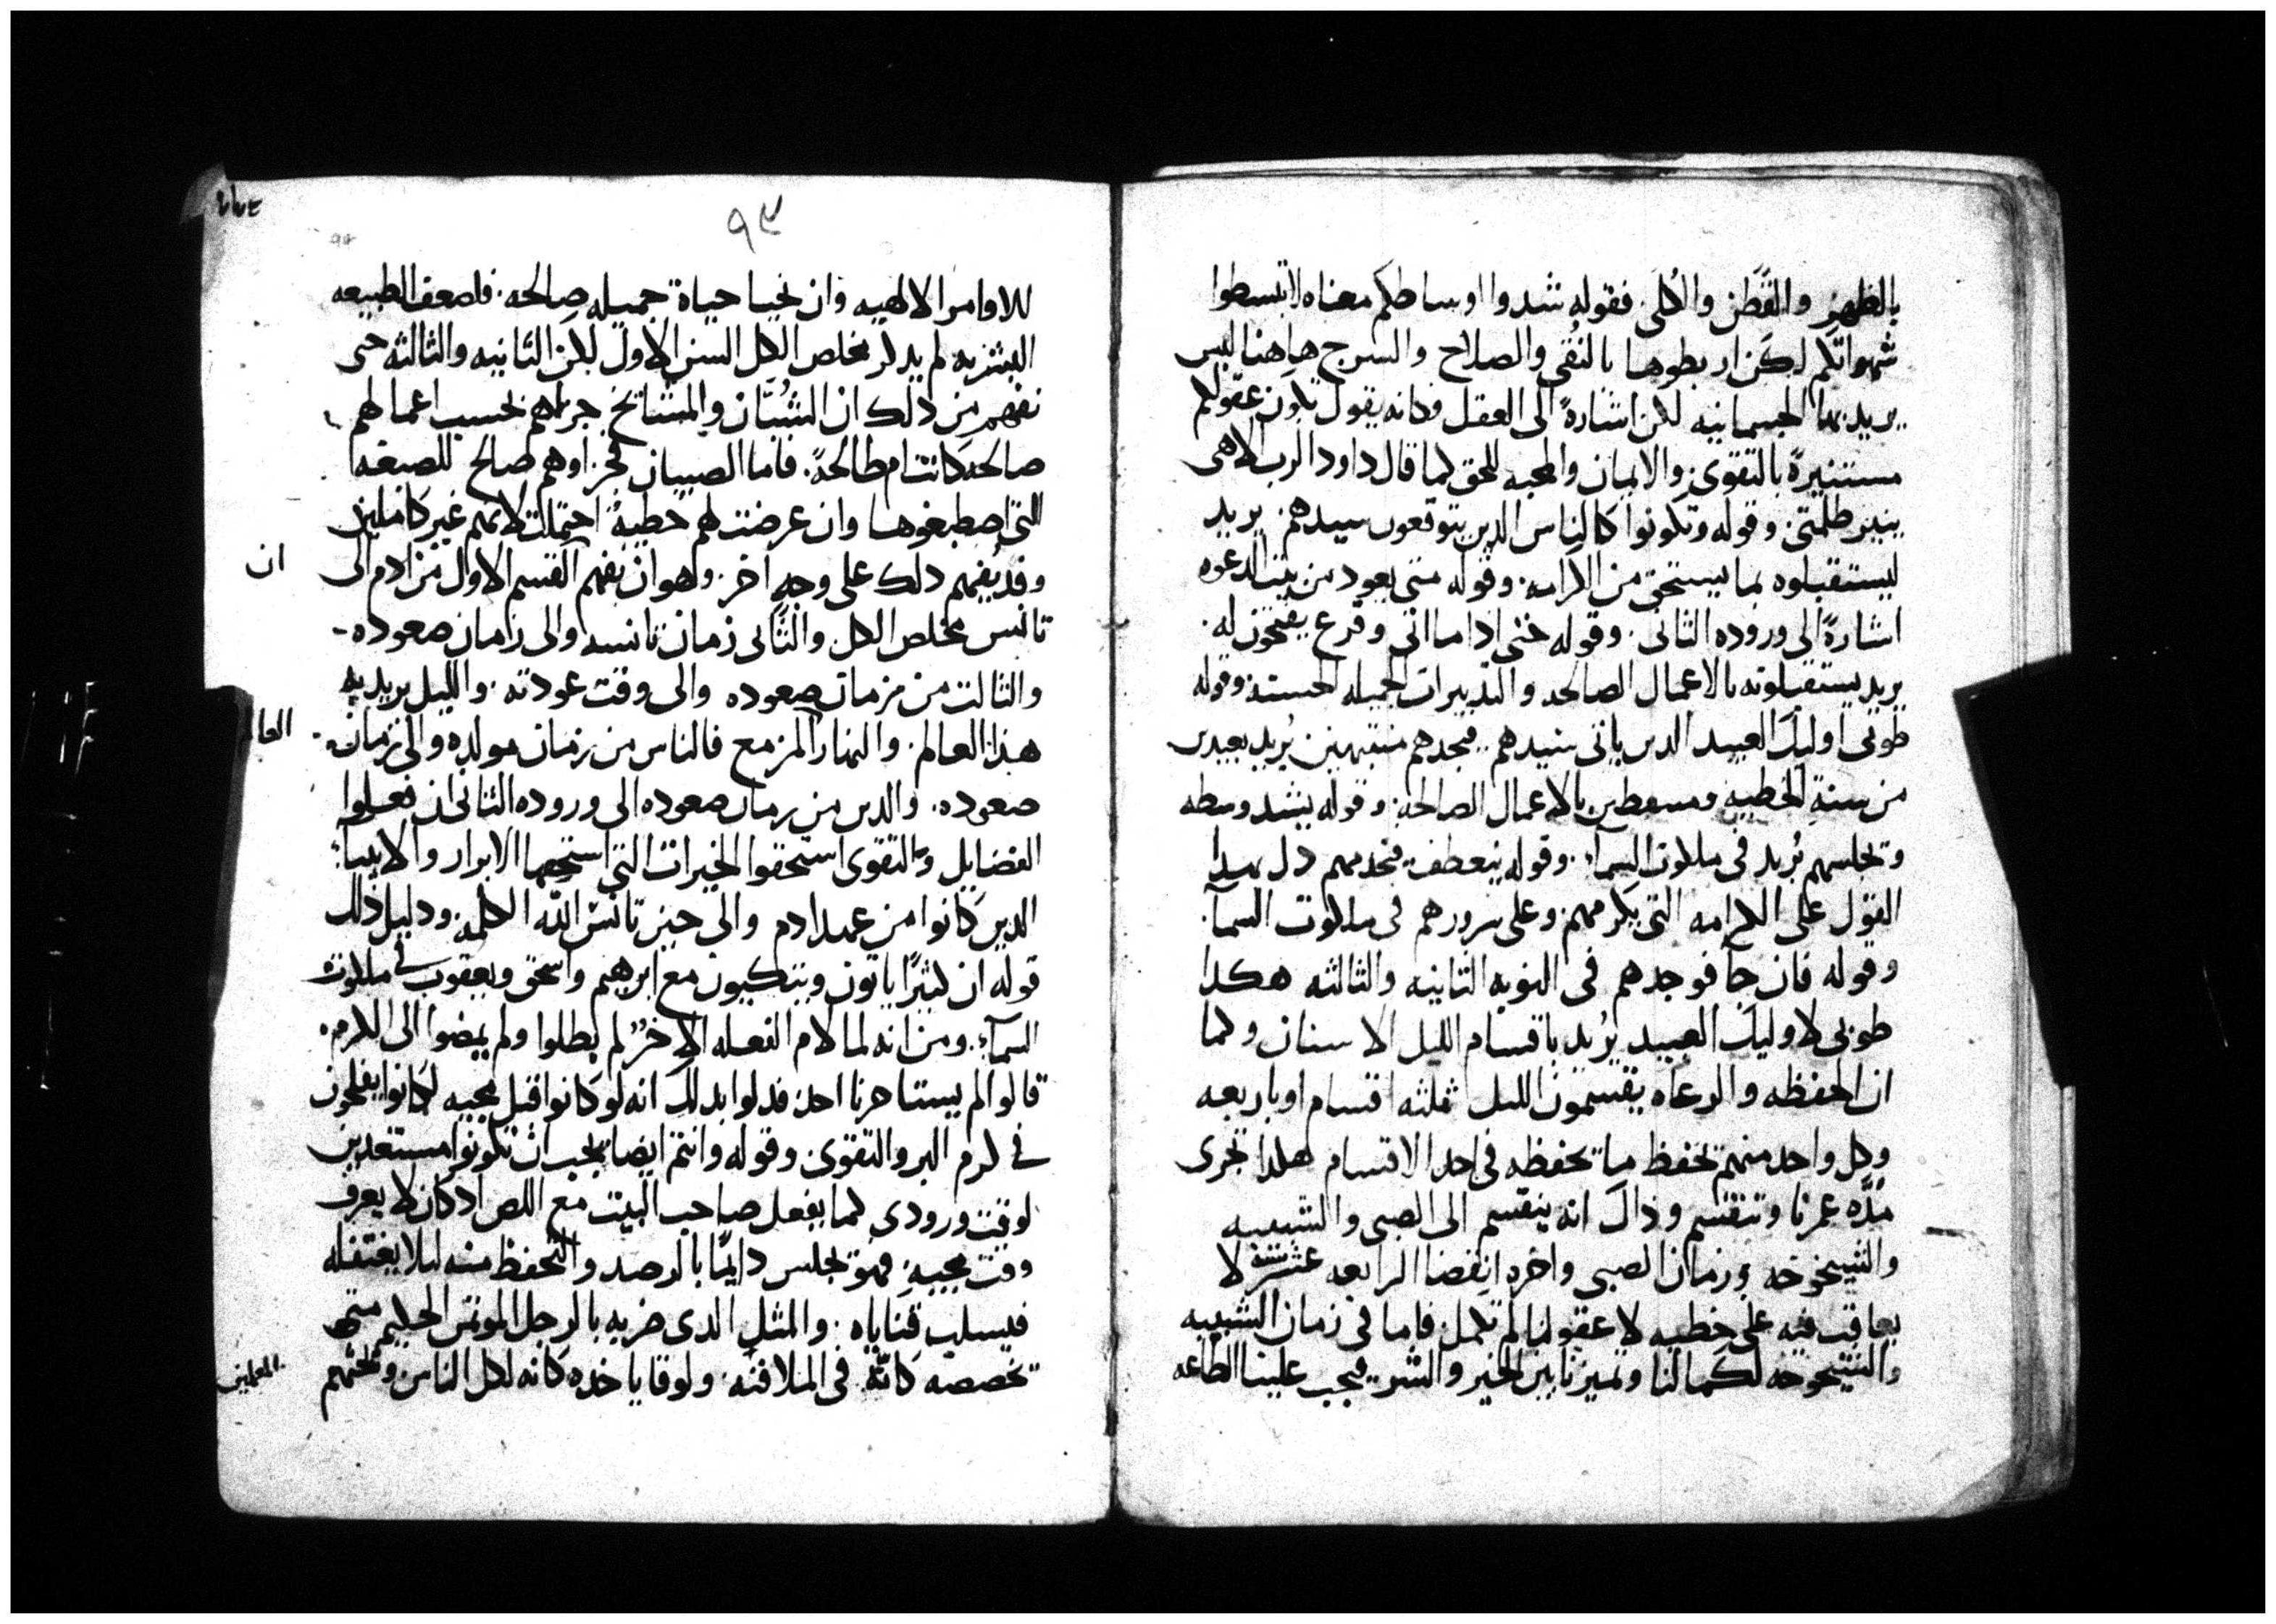 بالظهر والقَطَن والكُلَى. فقوله شدوا اوساطكم معناه لا تبسطوا
شهواتكم لكن اربطوها بالتُقى والصلاح والسرج هاهنا ليس
يريد بها الجسمانيه لكن اشارةً الى العقل وكانه يقول تكون عقولكم
مستنيرةً بالتقوى والايمان والمحبه للحق كما قال داود الرب الاهى
ينير ظلمتى. وقوله وتكونوا كالناس الدين يتوقعون سيدهم. يريد
ليستقبلوه بما يستحق من الكرامه. وقوله متى يعود من بيت الدعوه
اشارةً الى وروده الثانى. وقوله حتى ادا ما اتى وقرع يفتحون له.
يريد يستقبلونه بالاعمال الصالحه والتدبيرات الجميله الحسنه وقوله
طوبى اوليك العبيد الدين ياتى سيدهم فيجدهم منتبهين يُريد بعيدين
من سنة الخطيه ومتيقظين بالاعمال الصالحه. وقوله يشد وسطه
وتجلسهم يُريد فى ملكوت السمآء. وقوله ينعطف فيخدمهم دل بهدا
القول على الكرامه التى يكرمهم وعلى سرورهم فى ملكوت السمآ.
وقوله فان جآ فوجدهم فى النوبه الثانيه والثالثه هكدا
طوبى لاوليك العبيد يُريد باقسام الليل الاسنان وكما
ان الحفظه والرعاه يقتسمون الليل ثلثه اقسام او باربعه
وكل واحد منهم تحفظ ما تحفظه فى احد الاقسام هكدا تجرى
مُدّه عمرنا وتنقسم وذاك انه ينقسم الى الصبى والشبيبه
والشيخوخه وزمان الصبى واخره انقضا الرابعه عشر سنه لا
يعاقب فيه على خطيه لا عقولنا لم تكمل فاما فى زمان الشبيبه
والشيخوخه لكمالنا وتميزنا بين الخير والشر فيجب علينا الطاعه
٩٣
للاوامر الالهيه وان نحيا حياة جميله صالحه. فلضعف الطبيعه
البشريه لم يدكر مخلص الكل السن الاول لكن الثانيه والثالثه حتى
نفهم من دلك ان الشُبّان والمشايخ جزاهم بحسب اعمالهم
صالحه كانت ام طالحةً. فاما الصبيان فجزاوهم صالح للصبغه
التى اصطبغوها وان عرضت لهم خطيةٌ احتملت لانهم غير كاملين
وقد يُفهم دلك على وجهٍ آخر. وهو ان يفهم القسم الاول من ادم الى
ان
تانس مخلص الكل والثانى زمان تانسه والى زمان صعوده
والثالث من زمان صعوده والى وقت عودته. والليل يريد به
هدا العالم. والنهار المزمع فالناس من زمان مولده والى زمان
العا
صعوده. والدين من زمان صعوده الى وروده الثانى ان فعلوا
الفضايل والتقوى استحقوا الخيرات التى استحقها الابرار والانبيآ
الدين كانوا من عهد ادم والى حين تانس الله الكلمه. ودليل ذلك
قوله ان كثيرًا ياتون ويتكيون مع ابرهيم واسحق ويعقوب فى ملكوت
السمآء. ومن انه لما لام الفعله الاخرُ لم بطلوا ولم يمضوا الى الكرم.
قالوا لم يستاجرنا احد فدلوا بدلك انه لو كانوا قبل مجيه لكانوا يفلحون
فى كرم البر والتقوى وقوله وانتم ايضا يجب ان تكونوا مستعدين
لوقت ورودى كما يفعل صاحب البيت مع اللص اد كان لا يعرف
وقت مجيه فهو تجلس دايمًا بالرصد والتحفظ منه ليلا يغتفله
فيسلب قناياه. والمثل الدى ضربه بالرجل الموتمن الحليم متى
تخصصه كانّه فى الملافنه. ولوقا ياخده كانه لكل الناس وتحثهم
المعلمين